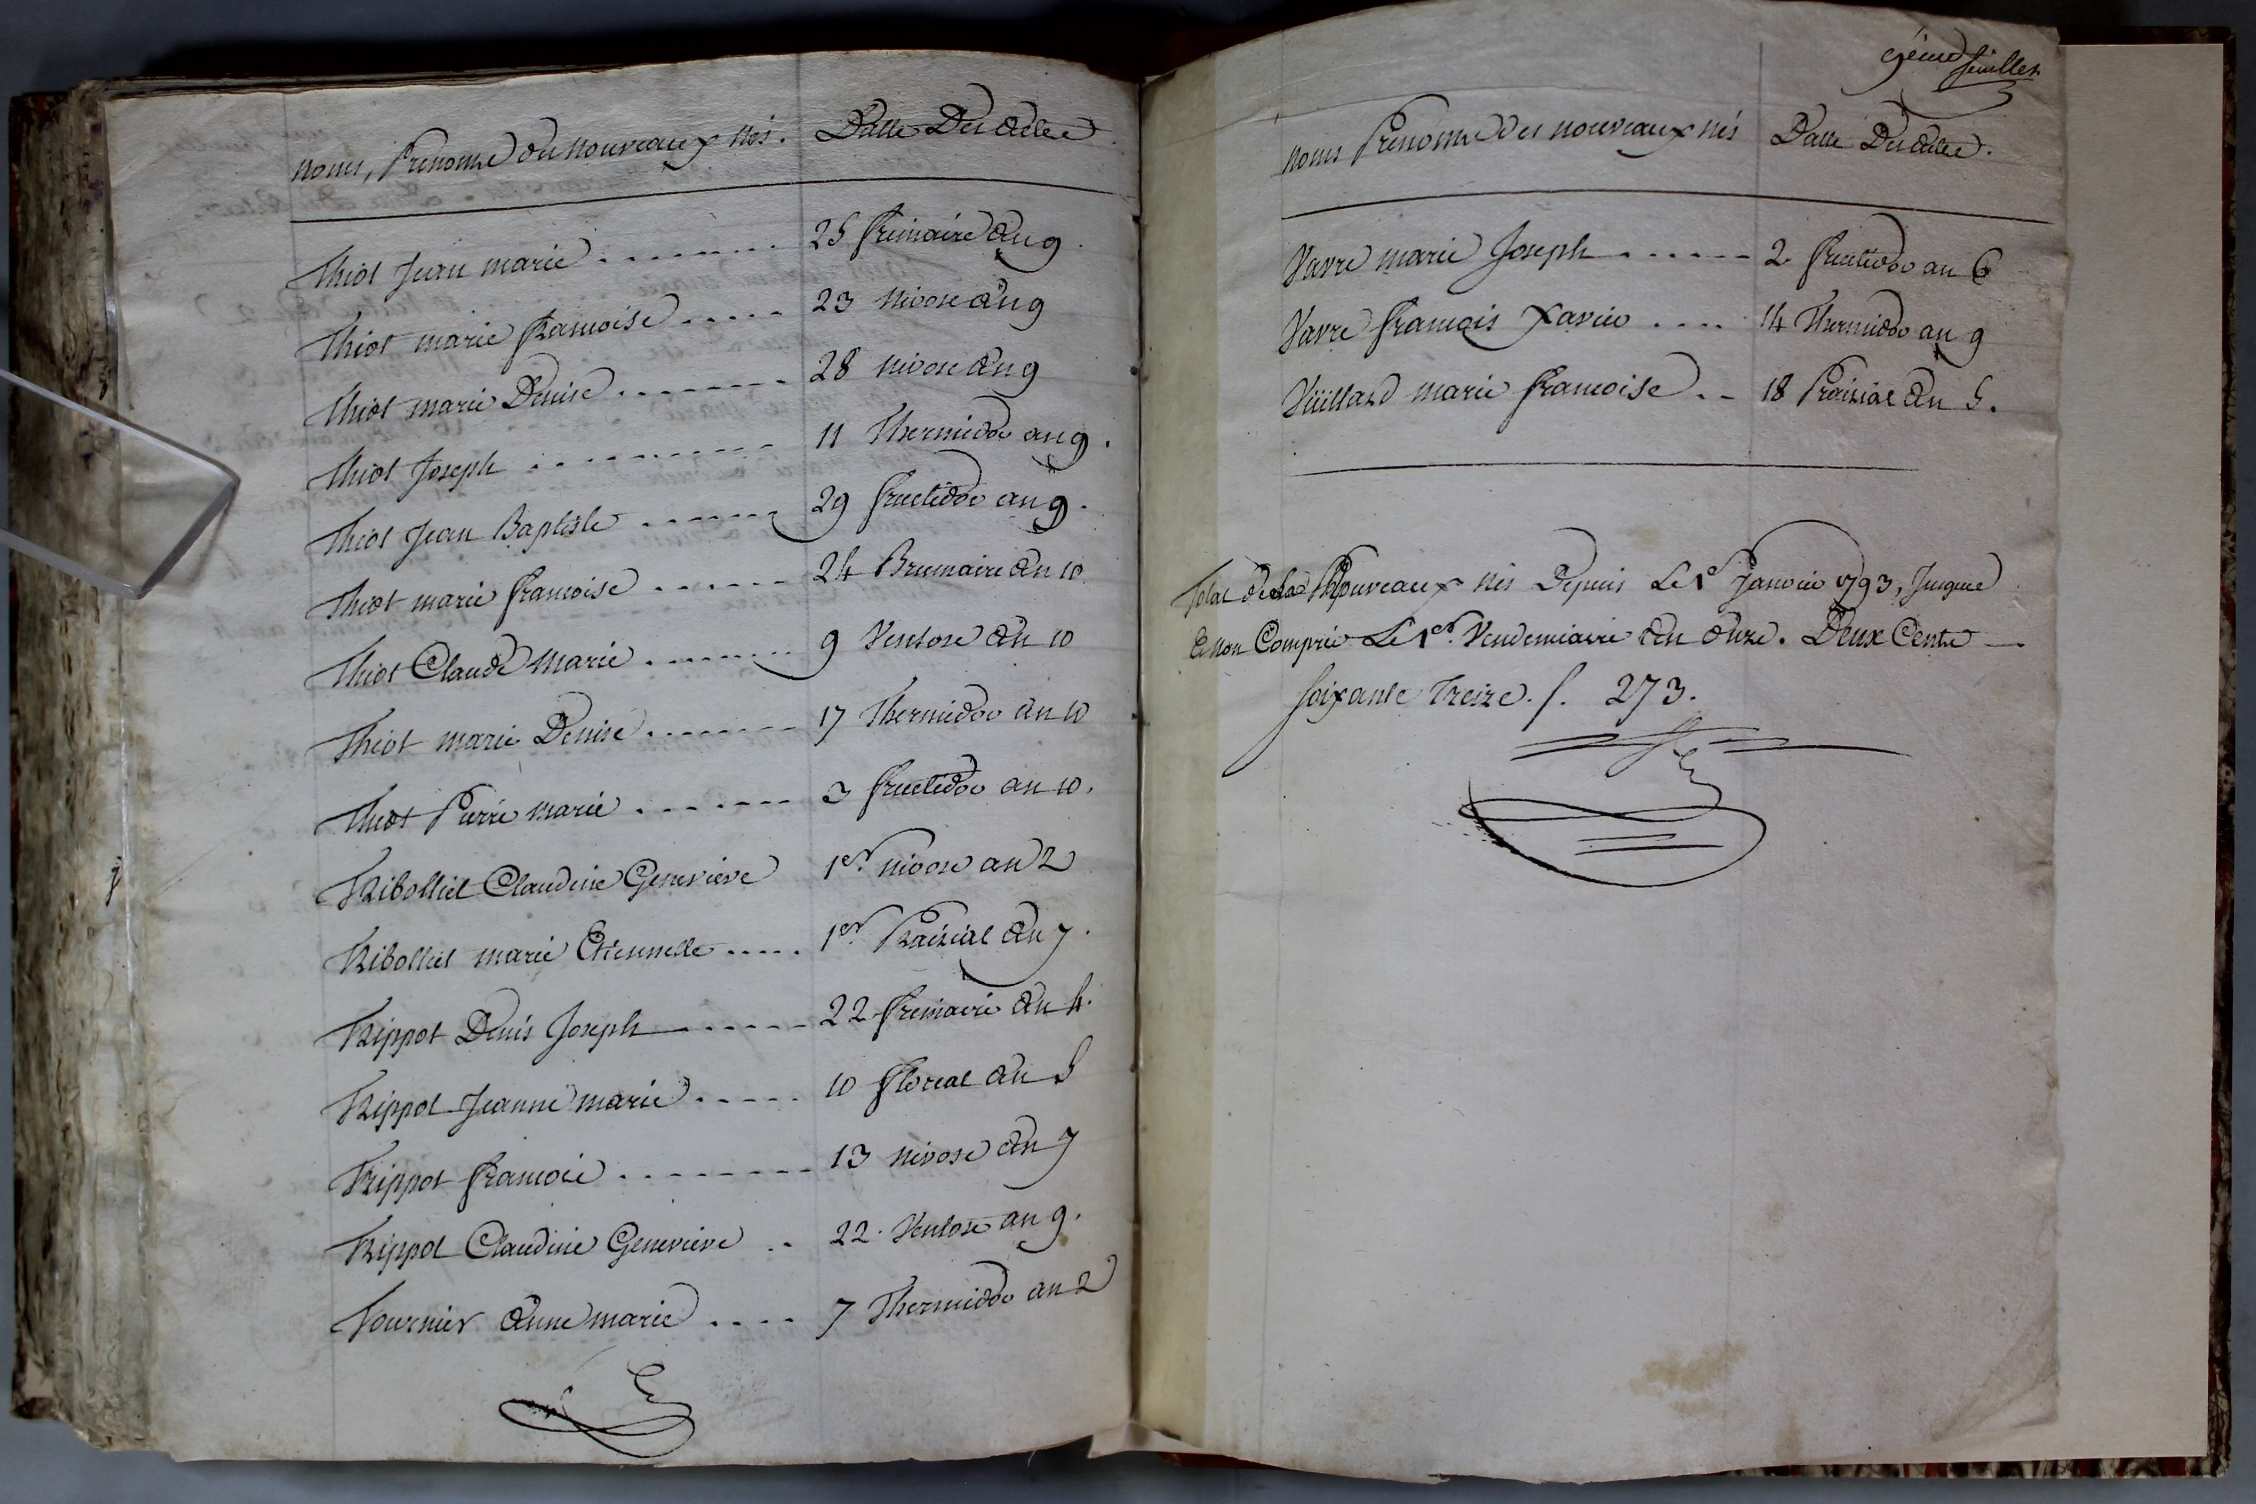 Noms, Prénoms des Nouveaux Nés. Datte Des actes
Thiot Jean marie ........ 25 frimaire an 9.
Thiot marie francoise ..... 23 Nivose an 9
Thiot marie Denise ........ 28 nivose an 9
Thiot Joseph .......... 11 Thermidor an 9.
Thiot Jean Baptiste ....... 29 fructidor an 9.
Thiot marie francoise ...... 24 Brumaire an 10
Thiot Claude Marie ........ 9 Ventose an 10
Thiot marie Denise ........ 17 Thermidor an 10
Thiot Pierre marie ....... 3 fructidor an 10.
Tribolliet Claudine Genevieve 1er nivose an 2
Tribolliet marie Etiennette ..... 1er Prairial an 7.
Trippot Denis Joseph ...... 22 frimaire an 4.
Trippot Jeanne marie ..... 10 floreal an 5
Trippot francois ........ 13 nivose an 7
Trippot Claudine Genevieve .. 22. Ventose an 9.
Tournier anne marie .... 7 Thermidor an 2
9eme feuillet
Noms Prénoms des nouveaux nés Datte Des actes.
Vavre marie Joseph ...... 2 fructidor an 6
Vavre francois Xavier .... 14 Thermidor an 9
Vuillard marie francoise .. 18 Prairial an 5.
Total des Nouveaux nés Depuis Le 1er Janvier 1793, Jusques
& non Compris Le 1er. Vendemiaire an onze. Deux Cents
soixante treize. /. 273.